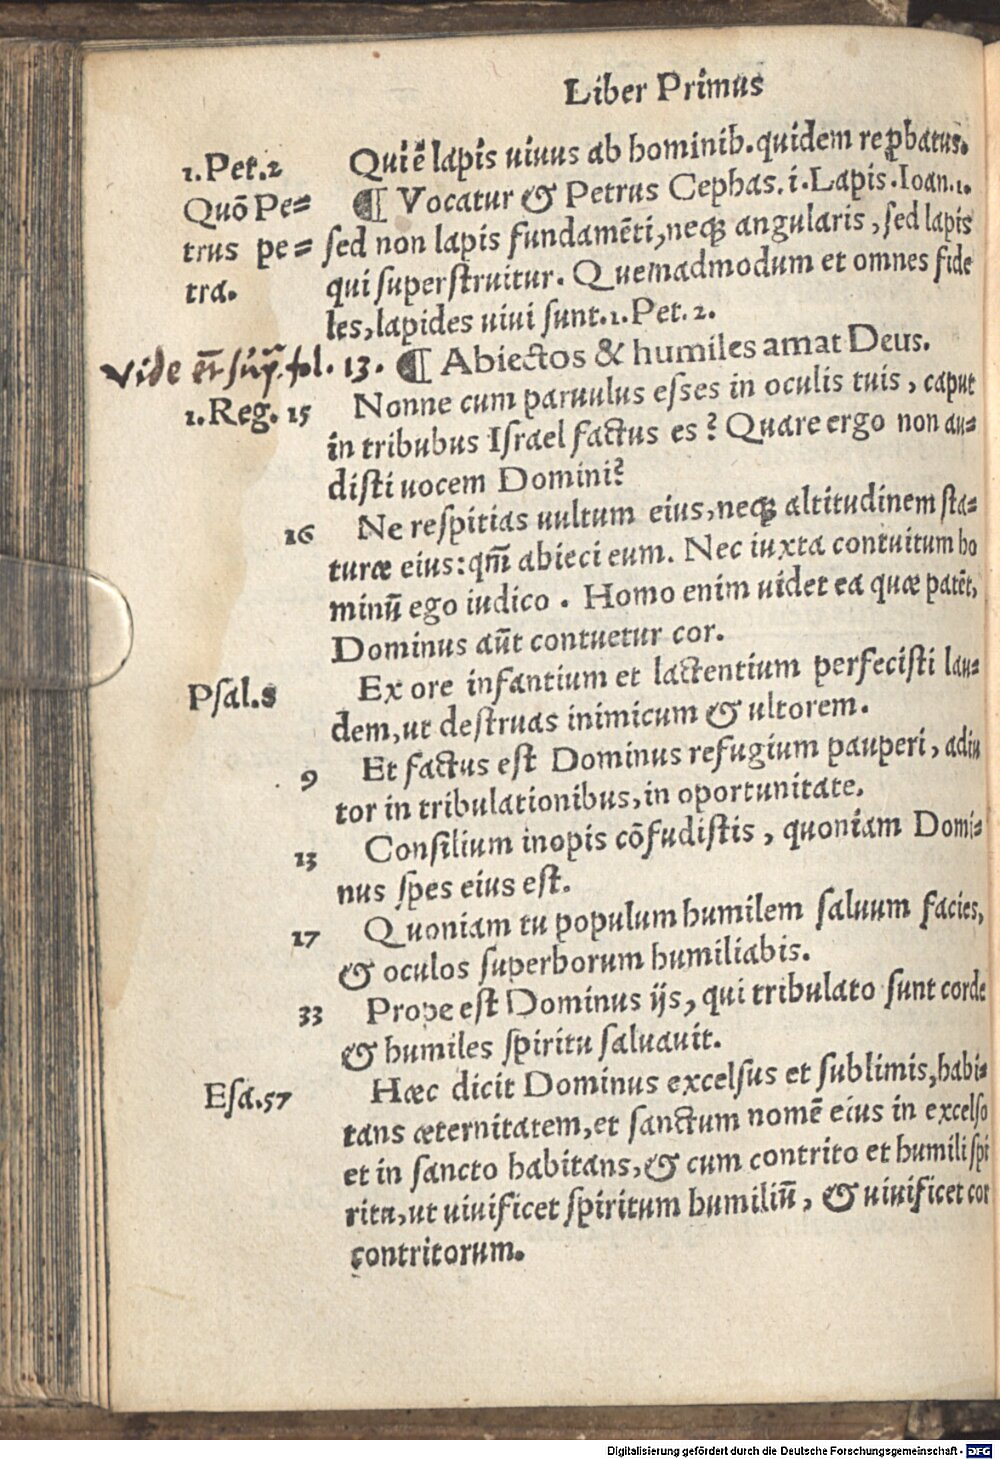 Liber Primus
1. Pet. 2 Qui ē lapis uiuus ab hominib. quidem reꝓbatus.
Quō Pe= ¶ Vocatur & Petrus Cephas. i. Lapis. Ioan. 1.
trus pe= sed non lapis fundamēti, neqꝫ angularis, sed lapis
tra. qui superstruitur. Quemadmodum et omnes fide
les, lapides uiui sunt. 1. Pet. 2.
Vide et̄ sup. fol. 13. ¶ Abiectos & humiles amat Deus.
1. Reg. 15 Nonne cum paruulus esses in oculis tuis, caput
in tribubus Israel factus es? Quare ergo non au=
disti uocem Domini?
16 Ne respitias uultum eius, neqꝫ altitudinem sta=
turæ eius: qm̄ abieci eum. Nec iuxta contuitum ho
minū ego iudico. Homo enim uidet ea quæ patēt,
Dominus aūt contuetur cor.
Psal. 8 Ex ore infantium et lactentium perfecisti lau=
dem, ut destruas inimicum & ultorem.
9 Et factus est Dominus refugium pauperi, adiu
tor in tribulationibus, in oportunitate.
13 Consilium inopis cōfudistis, quoniam Domi=
nus spes eius est.
17 Quoniam tu populum humilem saluum facies,
& oculos superborum humiliabis.
33 Prope est Dominus ijs, qui tribulato sunt corde
& humiles spiritu saluauit.
Esa. 57 Hæc dicit Dominus excelsus et sublimis, habi=
tans æternitatem, et sanctum nomē eius in excelso
et in sancto habitans, & cum contrito et humili spi
ritu, ut uiuificet spiritum humiliū, & uiuificet cor
contritorum.
Digitalisierung gefördert durch die Deutsche Forschungsgemeinschaft - DFG